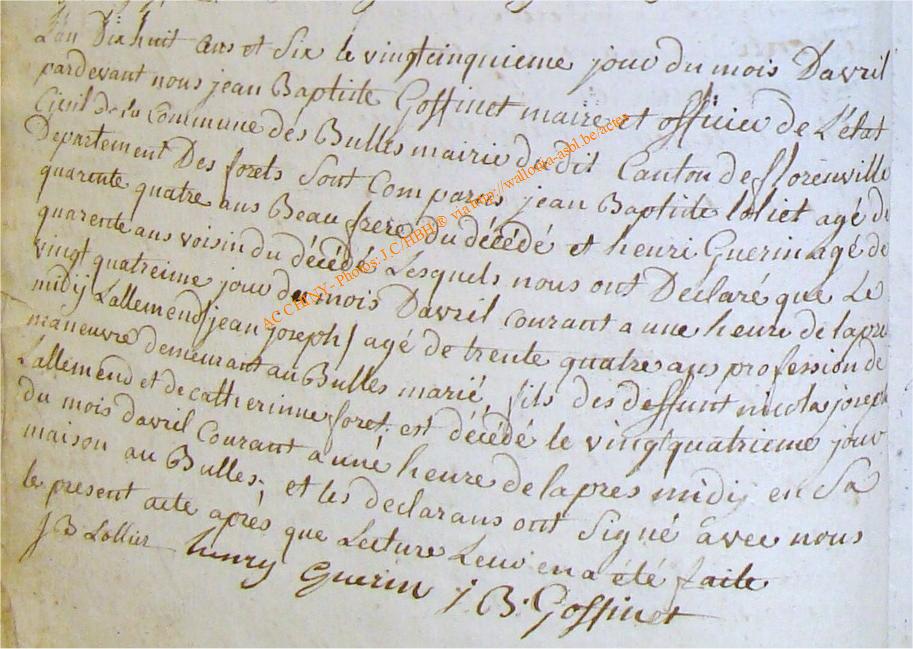 L'an Dix huit Cens et Six le vingtcinquieme jour du mois Davril
pardevant nous jean Baptiste Goffinet maire et officier de L'état
Civil de la Commune des Bulles mairie du dit Canton de florenville
Departement Des forets Sont Comparus jean Baptiste loliet agé de
quarente quatre ans Beau frere du décédé et henri Guerin agé de
quarente ans voisin du décédé Lesquels nous ont Declaré que Le
vingt quatreime jour du mois Davril courant a une heure de lapres
midij Lallemend jean joseph agé de trente quatre ans profession de
maneuvre demeurant au Bulles marié, fils des deffunt nicolas joseph
Lallemend et de catherinne foret est décédé le vingtquatrieme jour
du mois davril Courant a une heure de lapres midij en Sa
maison au Bulles; et les declarans ont Signé avec nous
le present acte après que Lecture Leur en a été faite
J B Lollier henry Guerin J. B. Goffinet
ACCHLNY- Photos J.C/HBH © via http://wallonia-asbl.be/actes